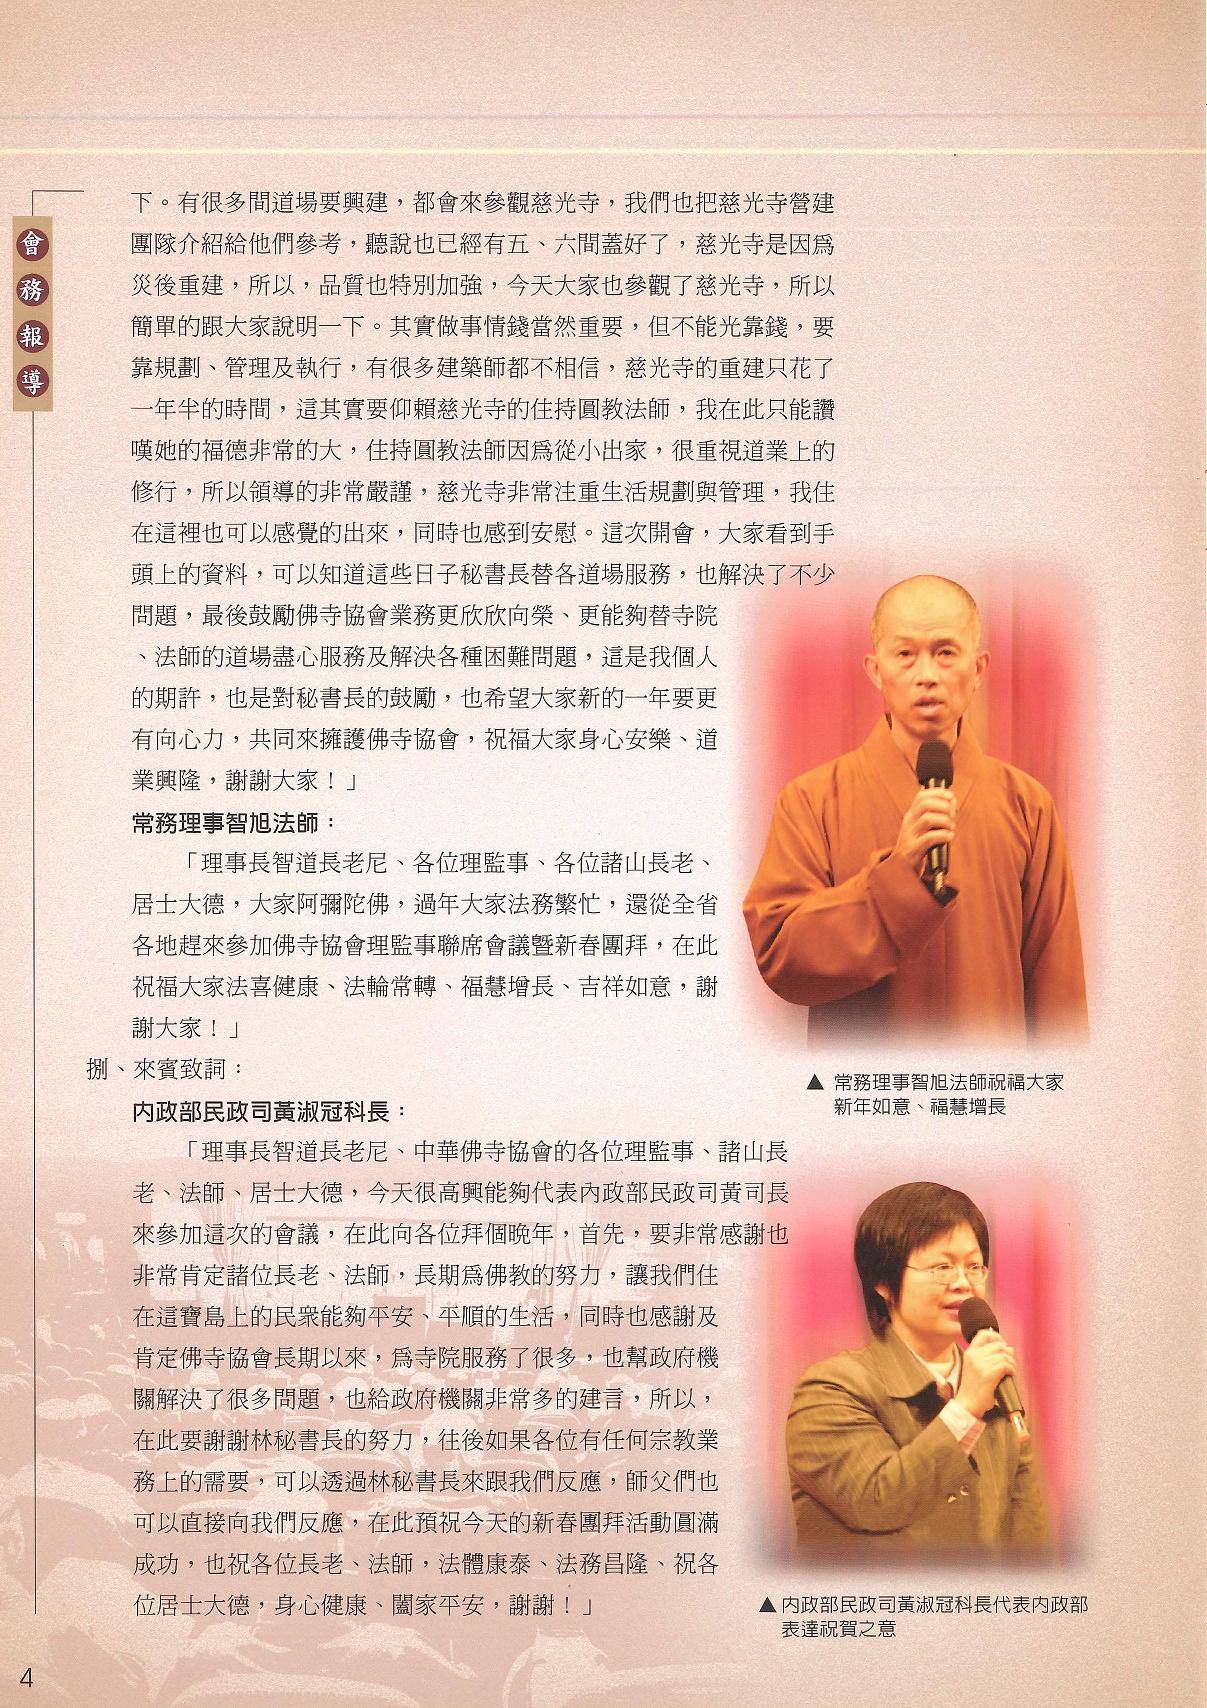 會務報導
下。有很多間道場要興建，都會來參觀慈光寺，我們也把慈光寺營建
團隊介紹給他們參考，聽說也已經有五、六間蓋好了，慈光寺是因爲
災後重建，所以，品質也特別加強，今天大家也參觀了慈光寺，所以
簡單的跟大家說明一下。其實做事情錢當然重要，但不能光靠錢，要
靠規劃、管理及執行，有很多建築師都不相信，慈光寺的重建只花了
一年半的時間，這其實要仰賴慈光寺的住持圓教法師，我在此只能讚
嘆她的福德非常的大，住持圓教法師因爲從小出家，很重視道業上的
修行，所以領導的非常嚴謹，慈光寺非常注重生活規劃與管理，我住
在這裡也可以感覺的出來，同時也感到安慰。這次開會，大家看到手
頭上的資料，可以知道這些日子秘書長替各道場服務，也解決了不少
問題，最後鼓勵佛寺協會業務更欣欣向榮、更能夠替寺院
、法師的道場盡心服務及解決各種困難問題，這是我個人
的期許，也是對秘書長的鼓勵，也希望大家新的一年要更
有向心力，共同來擁護佛寺協會，祝福大家身心安樂、道
業興隆，謝謝大家！」
常務理事智旭法師：
「理事長智道長老尼、各位理監事、各位諸山長老、
居士大德，大家阿彌陀佛，過年大家法務繁忙，還從全省
各地趕來參加佛寺協會理監事聯席會議暨新春團拜，在此
祝福大家法喜健康、法輪常轉、福慧增長、吉祥如意，謝
謝大家！」
捌、來賓致詞：
內政部民政司黃淑冠科長：
「理事長智道長老尼、中華佛寺協會的各位理監事、諸山長
老、法師、居士大德，今天很高興能夠代表內政部民政司黃司長
來參加這次的會議，在此向各位拜個晚年，首先，要非常感謝也
非常肯定諸位長老、法師，長期爲佛教的努力，讓我們住
在這寶島上的民衆能夠平安、平順的生活，同時也感謝及
肯定佛寺協會長期以來，爲寺院服務了很多，也幫政府機
關解決了很多問題，也給政府機關非常多的建言，所以，
在此要謝謝林秘書長的努力，往後如果各位有任何宗教業
務上的需要，可以透過林秘書長來跟我們反應，師父們也
可以直接向我們反應，在此預祝今天的新春團拜活動圓滿
成功，也祝各位長老、法師，法體康泰、法務昌隆、祝各
位居士大德，身心健康、闔家平安，謝謝！」
▲ 常務理事智旭法師祝福大家
新年如意、福慧增長
▲內政部民政司黃淑冠科長代表內政部
表達祝賀之意
4